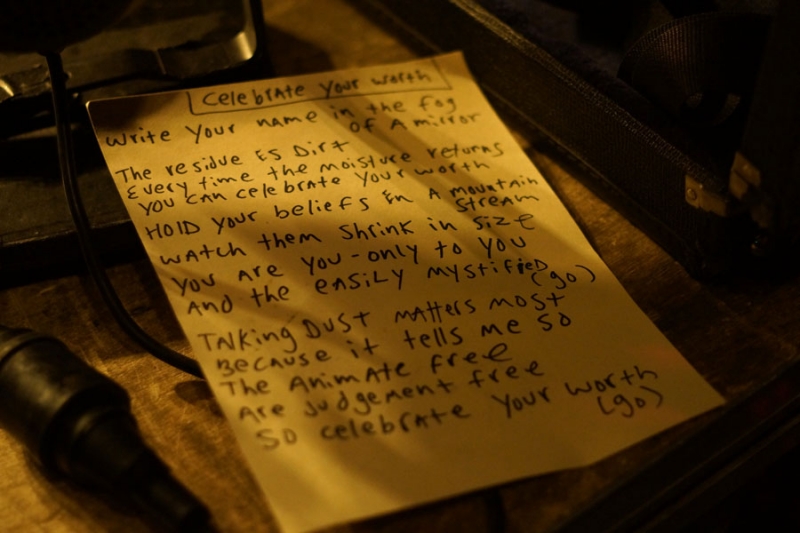 Celebrate Your Worth
Write Your name in the fog
of A mirror
The residue is Dirt
Every time the moisture returns
You can celebrate your worth
HOLD your beliefs in A mountain
stream
Watch them shrink in size
You are you-only to you
And the easily mystified
(go)
TALKing Dust matters most
Because it tells me so
The Animate free
Are judgement free
So celebrate your worth
(go)